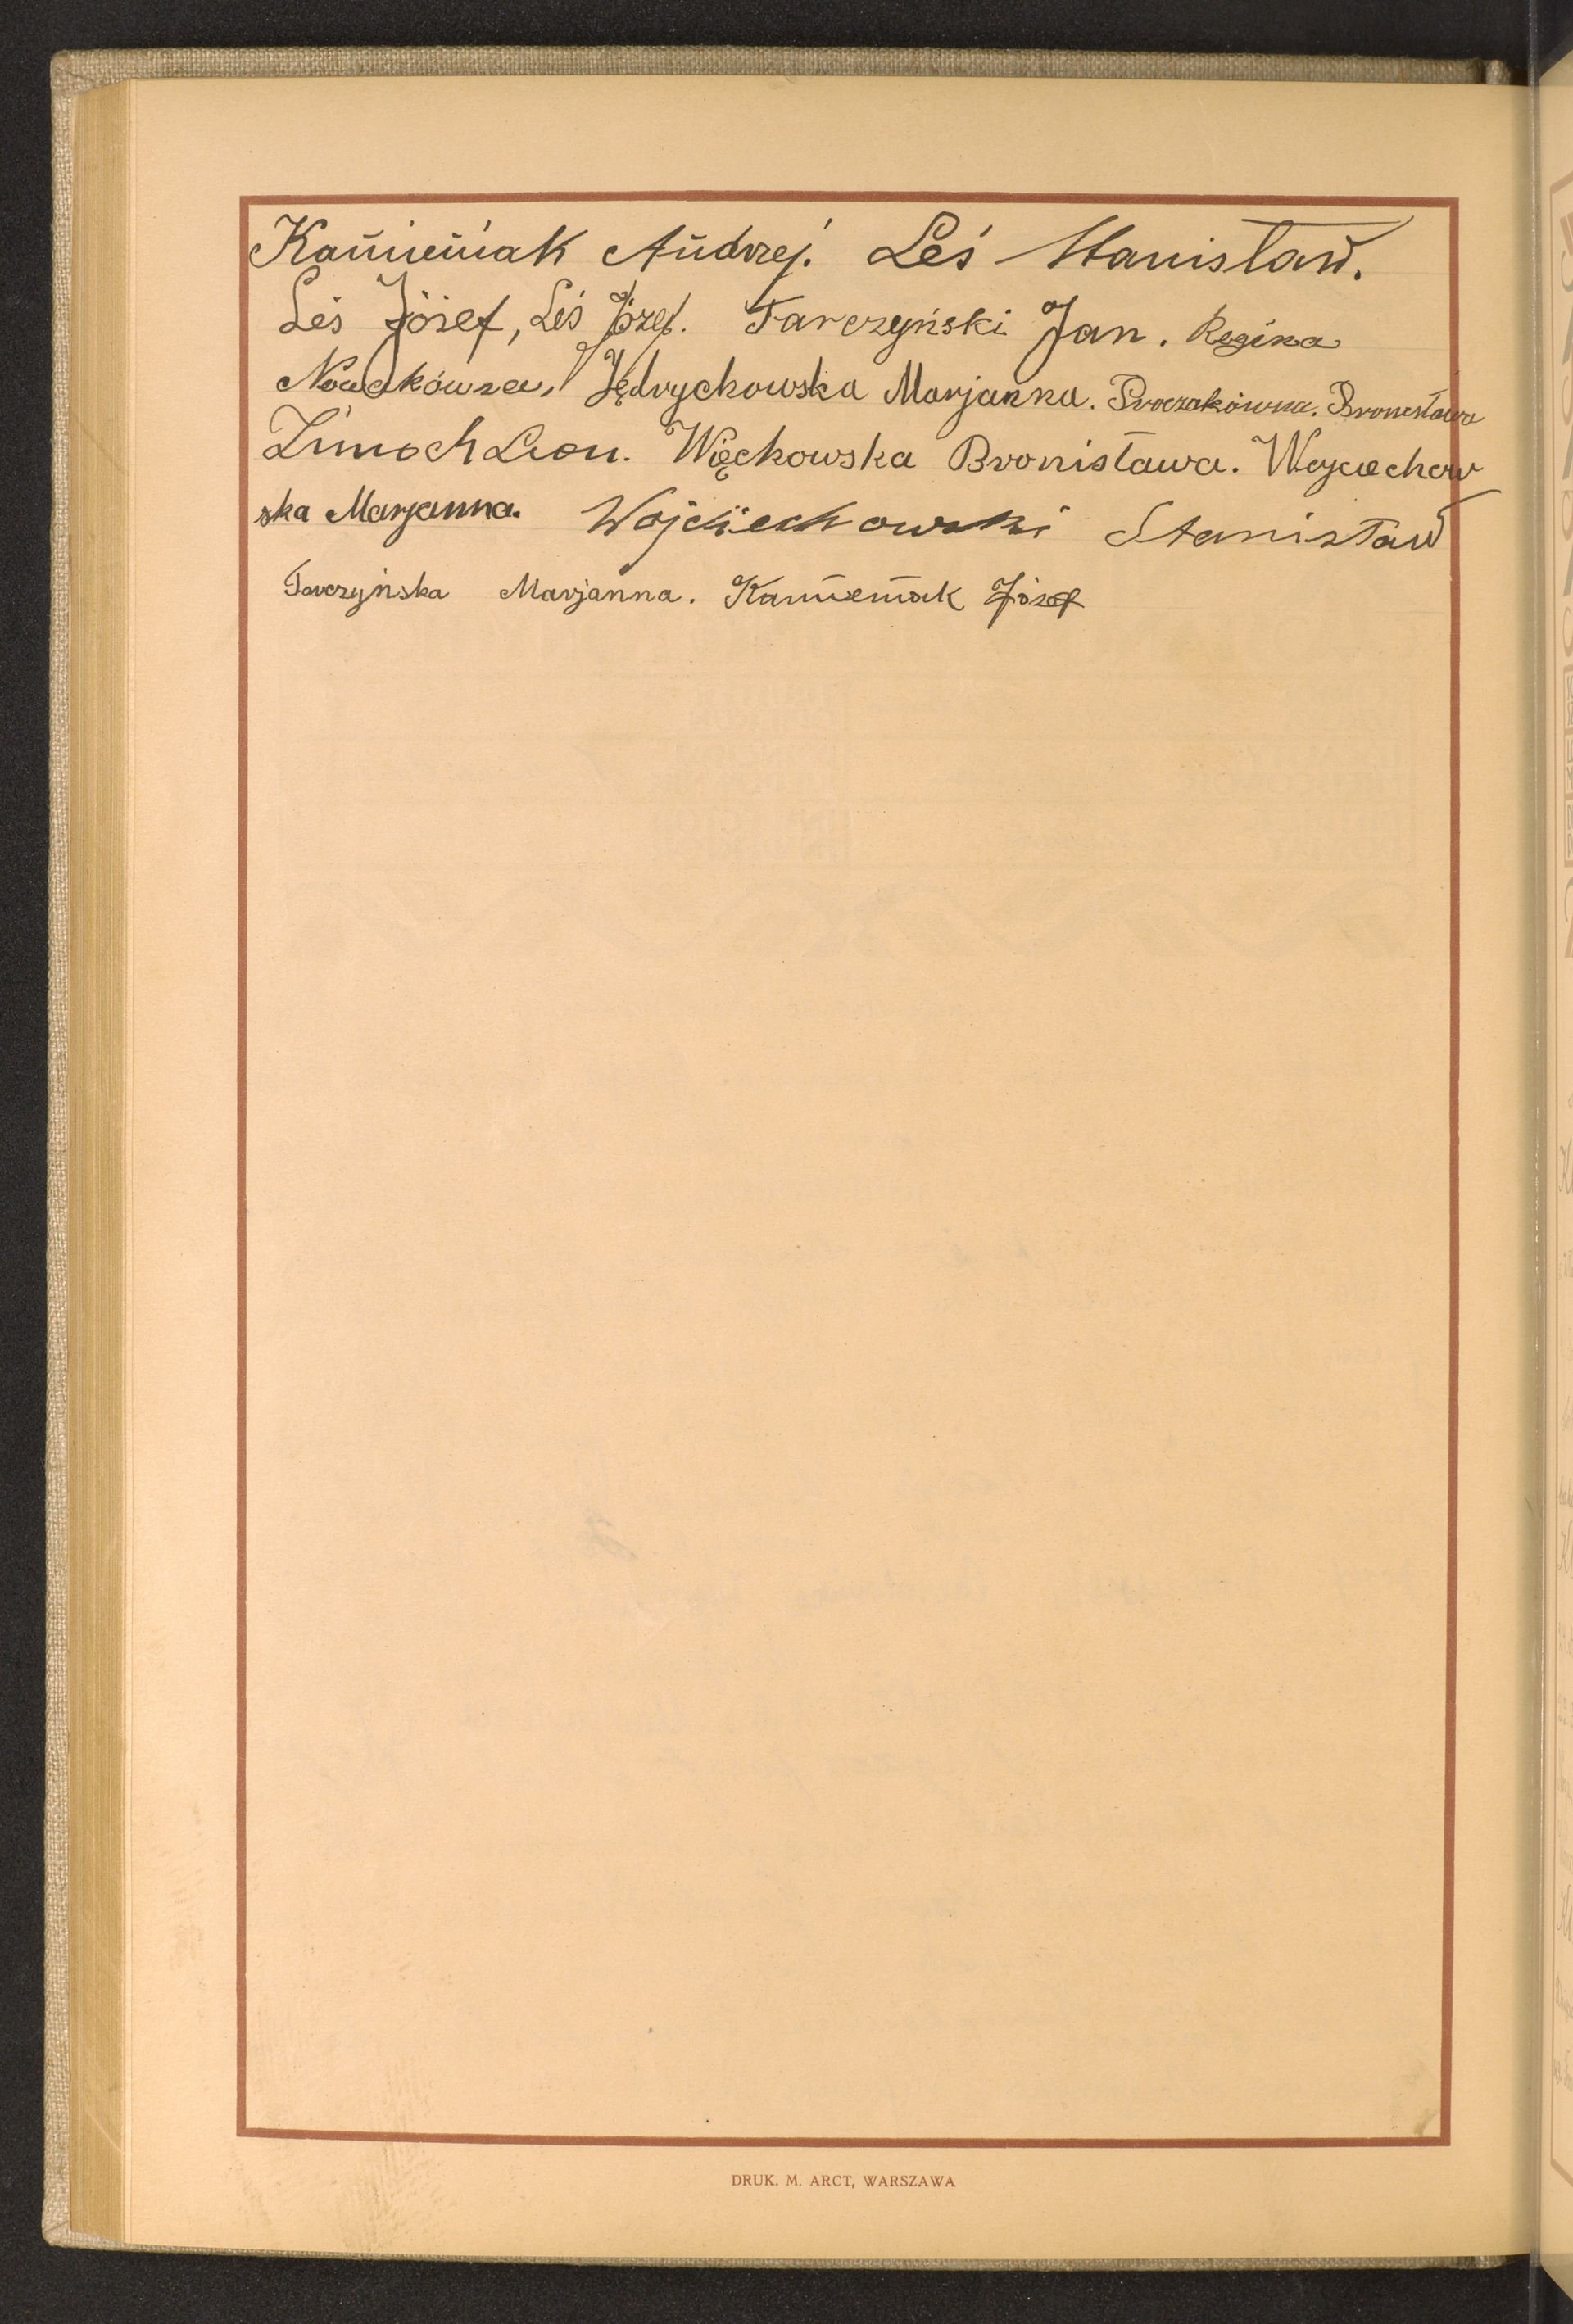 Kamieniak Andrzej. Leś Stanisław.
Leś Józef, Leś Józef. Tarczyński Jan. Regina
Nowakówna, Jędrychowska Marjanna. Proczakówna. Bronisława
Zimoch Leon. Więckowska Bronisława. Wojciechow
ska Marjanna. Wojciechowski Stanisław
Tarczyńska Marjanna. Kamieniak Józef
DRUK. M. ARCT, WARSZAWA